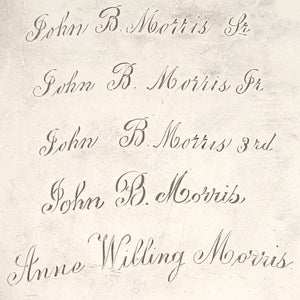 John B. Morris Sr
John B. Morris Jr.
John B. Morris 3rd
John B. Morris
Anne Willing Morris